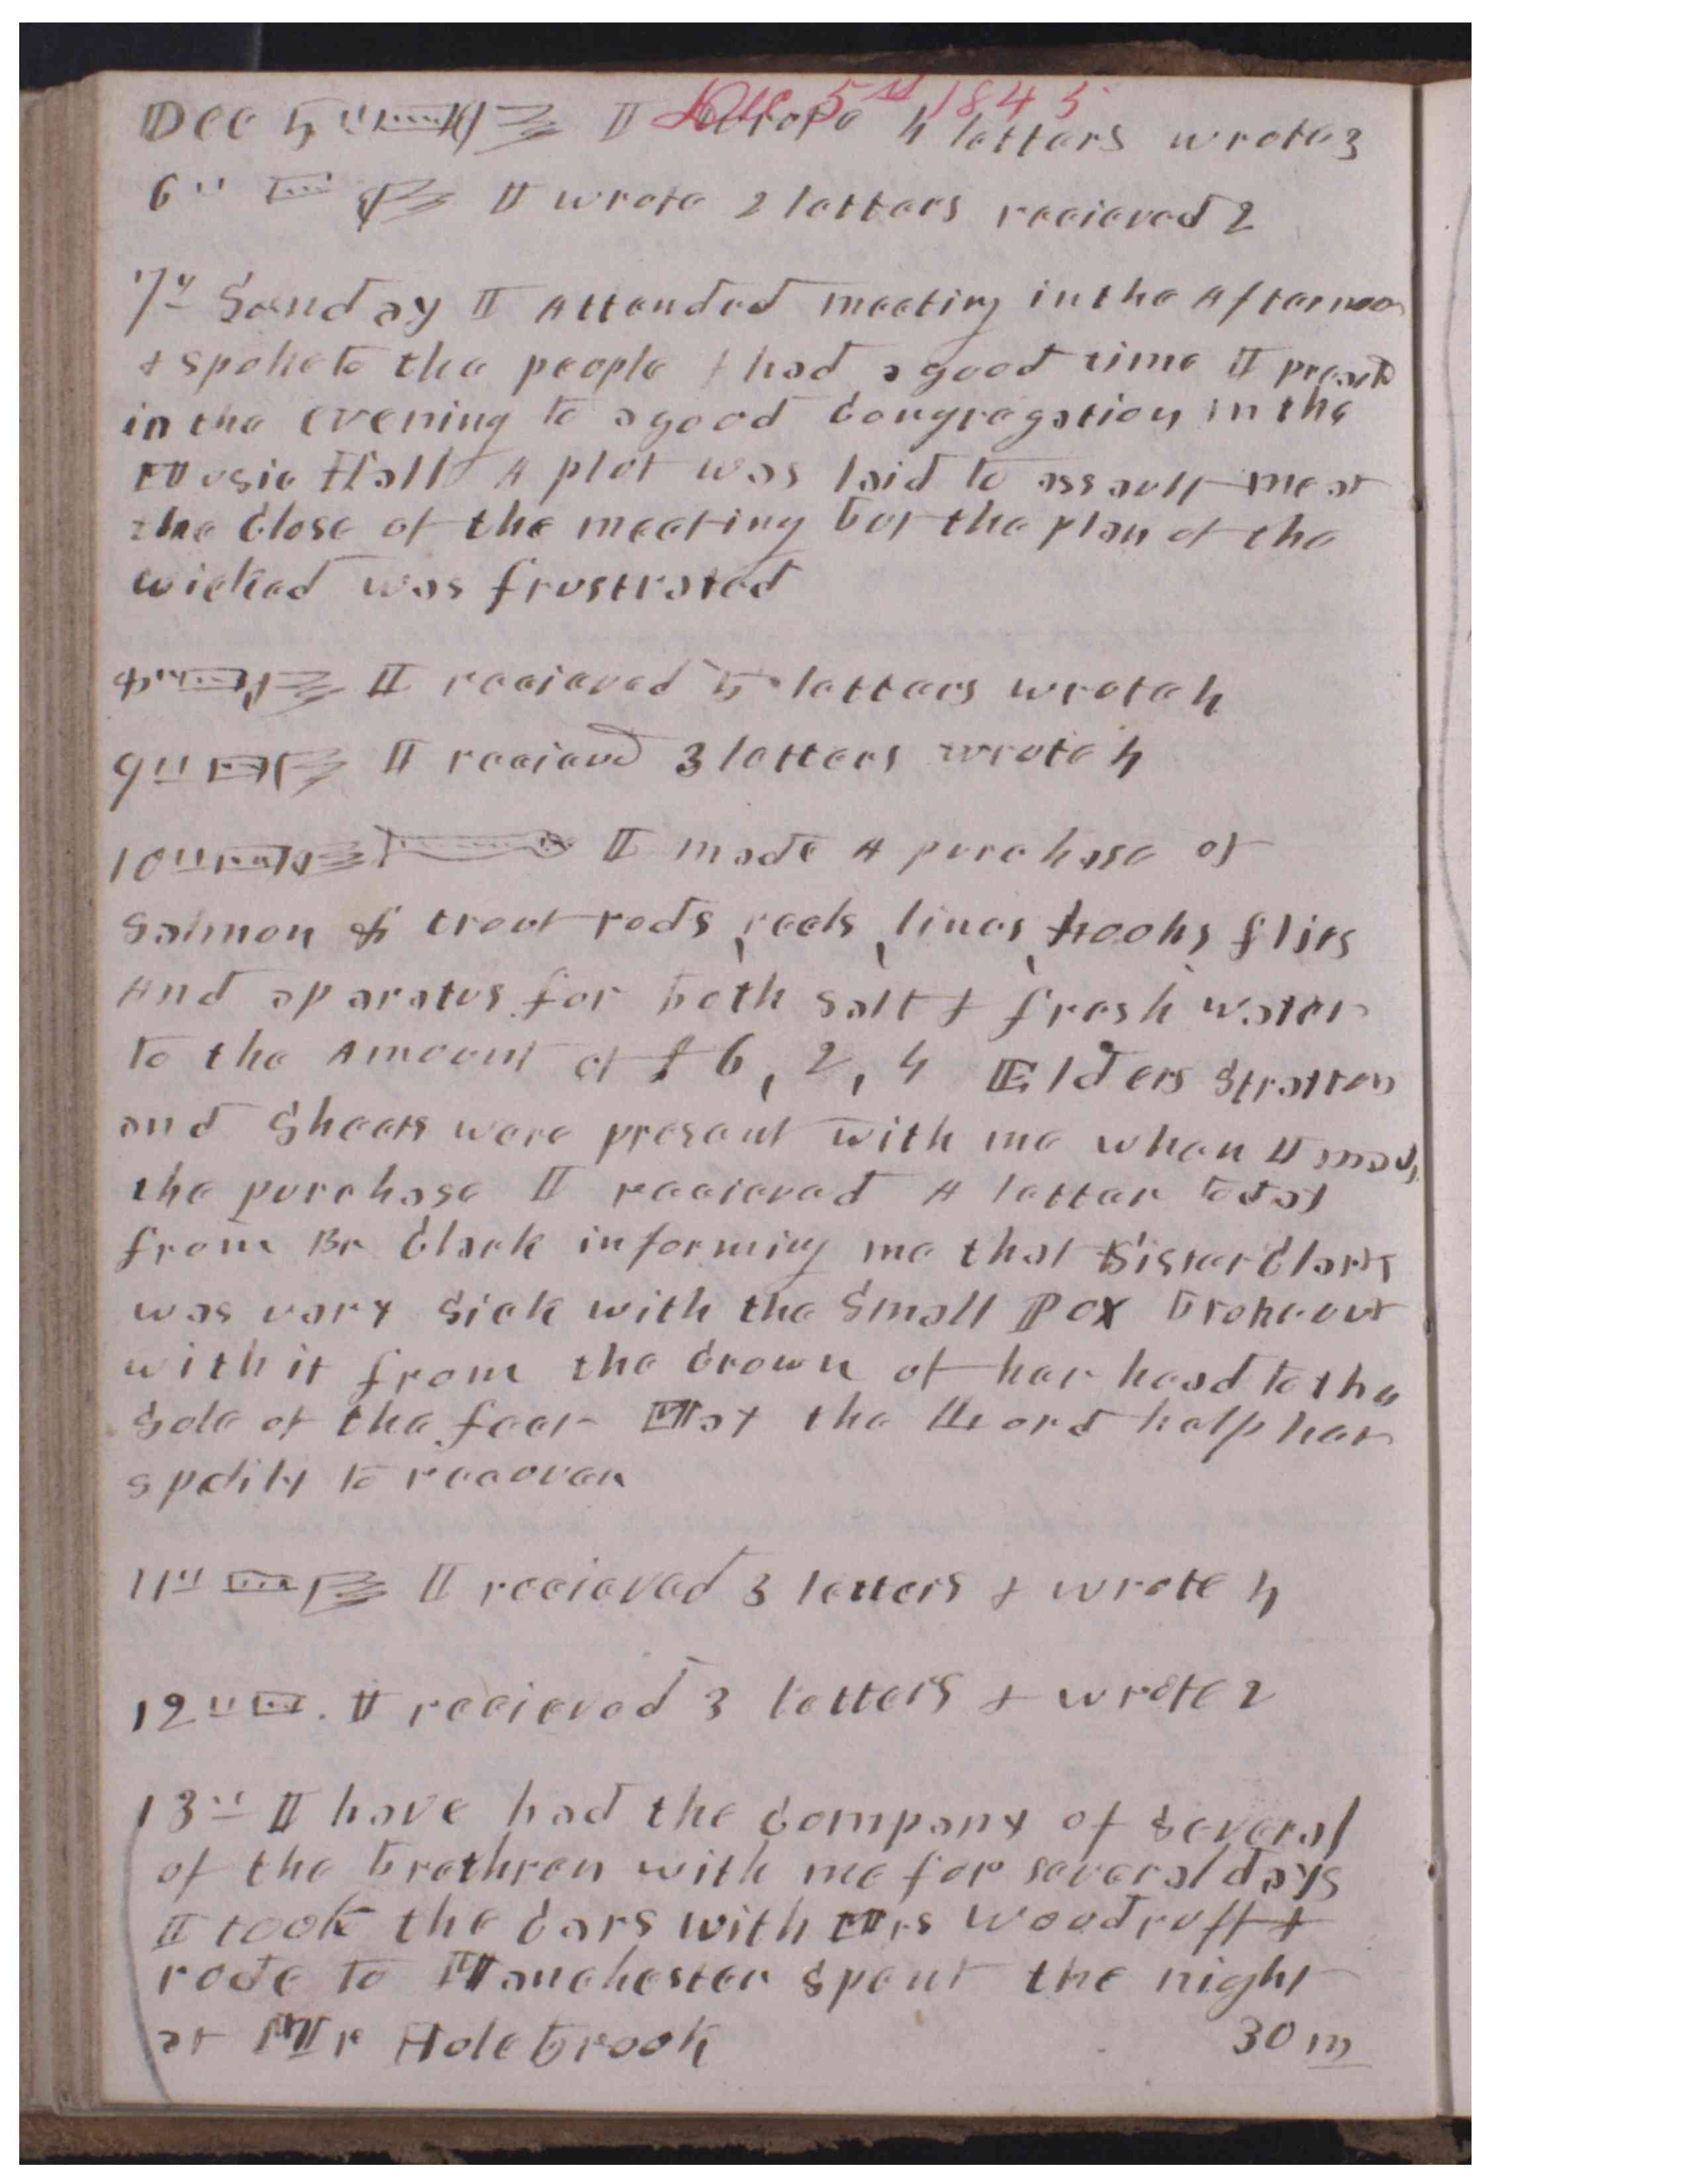 Dec 5th 1845
Dec 5" I wrote 4 letters wrote 3
6" I wrote 2 letters recieved 2
7" Sunday I Attended meeting in the Afternoon
& spoke to the people & had a good time I preach
in the evening to a good Congregation in the
Music Hall A plot was laid to assault me at
the Close of the meeting but the plan of the
wicked was frustrated
8" I recieved 5 letters wrote 4
9" I recieved 3 letters wrote 4
10" I made A purchase of
Salmon & trout rods, reels, lines, hooks, flies
And aparatus for both salt & fresh water
to the Amount of £6, 2, 4 Elders Stratton
and Sheets were present with me when I made
the purchase I recieved A letter to day
from Br Clark informing me that Sister Clark
was very sick with the Small Pox broke out
with it from the Crown of her head to the
Sole of the feet May the Lord help her
spedily to recover
11" I recieved 3 letters & wrote 4
12" I recieved 3 letters & wrote 2
13" I have had the Company of several
of the brethren with me for several days
I took the Cars with Mrs Woodruff &
rode to Manchester spent the night
at Mr Holebrook 30 m